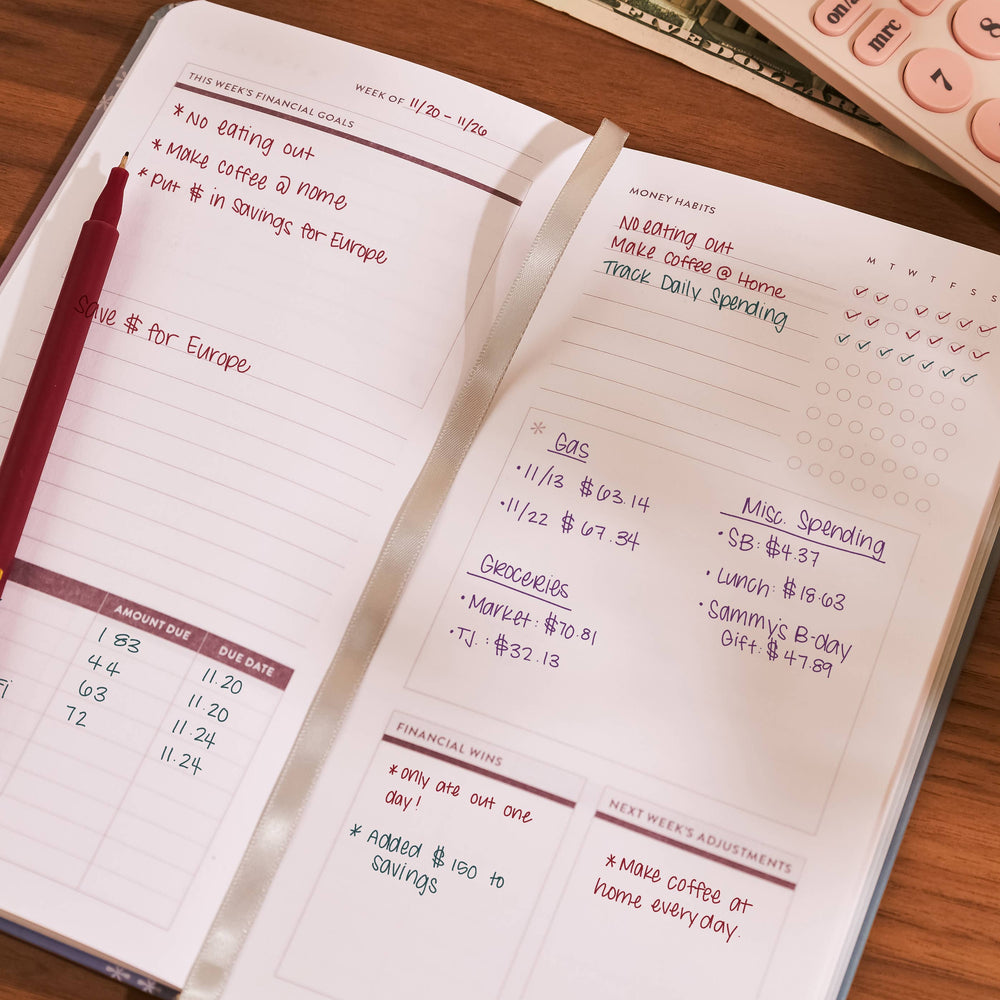 WEEK OF 11/20 - 11/26
THIS WEEK'S FINANCIAL GOALS
* No eating out
* Make coffee @ home
* Put $ in savings for Europe
save $ for Europe
AMOUNT DUE DUE DATE
183 11.20
44 11.20
Fi 63 11.24
72 11.24
MONEY HABITS
M T W T F S S
No eating out
Make coffee @ Home
Track Daily Spending
* Gas
• 11/13 $63.14
• 11/22 $67.34
Groceries
• Market: $70.81
• T.J. : $32.13
Misc. Spending
• SB: $4.37
• Lunch: $18.63
• Sammy's B-day
Gift: $47.89
FINANCIAL WINS
* only ate out one
day!
* Added $150 to
savings
NEXT WEEK'S ADJUSTMENTS
* Make coffee at
home everyday.
FIVE DOLLARS
on/
mrc
7
8